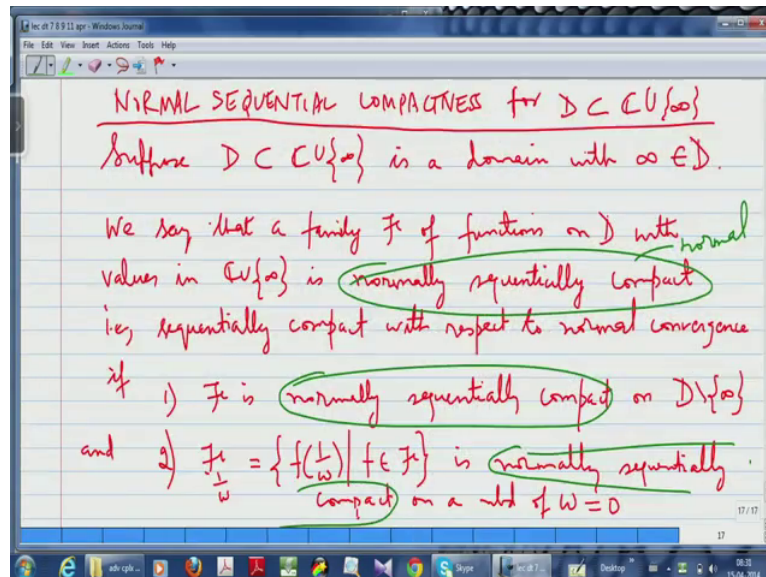 lec dt 7 8 9 11 apr - Windows Journal
File Edit View Insert Actions Tools Help
NORMAL SEQUENTIAL COMPACTNESS for D ⊂ ℂ∪{∞}
Suppose D ⊂ ℂ∪{∞} is a domain with ∞ ∈ D.
We say that a family ℱ of functions on D with normal
values in ℂ∪{∞} is normally sequentially compact
i.e., sequentially compact with respect to normal convergence
if 1) ℱ is normally sequentially compact on D\{∞}
and 2) ℱ_{1/w} = {f(1/w) | f ∈ ℱ} is normally sequentially
compact on a nbd of w = 0
17/17
17
adv cplx...
Skype
lec dt 7...
Desktop
08:31
15-04-2014